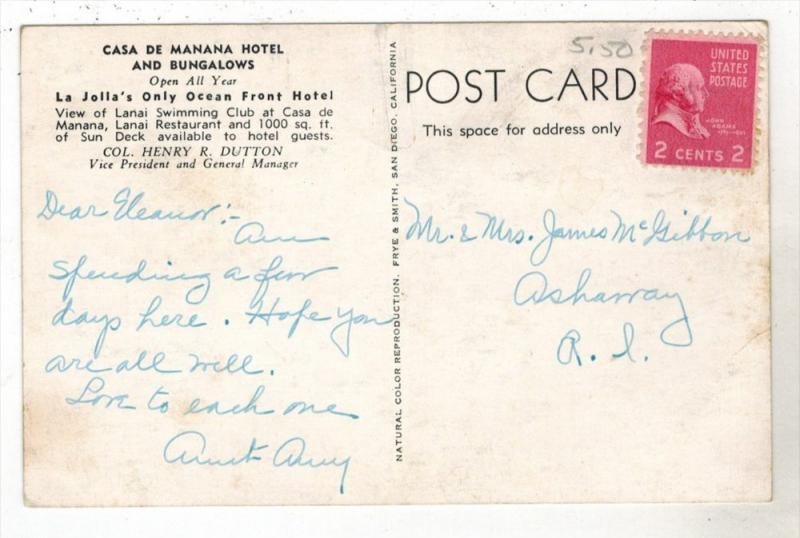 CASA DE MANANA HOTEL
AND BUNGALOWS
Open All Year
La Jolla's Only Ocean Front Hotel
View of Lanai Swimming Club at Casa de
Manana, Lanai Restaurant and 1000 sq. ft.
of Sun Deck available to hotel guests.
COL. HENRY R. DUTTON
Vice President and General Manager
Dear Eleanor:-
Am
spending a few
days here. Hope you
are all well.
Love to each one
Aunt Amy
NATURAL COLOR REPRODUCTION. FRYE & SMITH, SAN DIEGO, CALIFORNIA
5.50
POST CARD
This space for address only
UNITED
STATES
POSTAGE
JOHN
ADAMS
2 CENTS 2
Mr. & Mrs. James McGibbon
Ashaway
R. I.